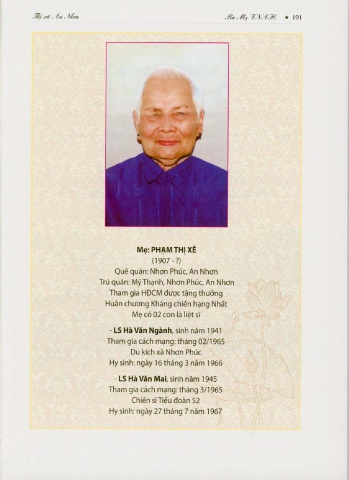 Thị xã An Nhơn
Bà Mẹ VNAH ★ 191
Mẹ: PHẠM THỊ XÊ
(1907 - ?)
Quê quán: Nhơn Phúc, An Nhơn
Trú quán: Mỹ Thạnh, Nhơn Phúc, An Nhơn
Tham gia HĐCM được tặng thưởng
Huân chương Kháng chiến hạng Nhất
Mẹ có 02 con là liệt sĩ
- LS Hà Văn Ngành, sinh năm 1941
Tham gia cách mạng: tháng 02/1965
Du kích xã Nhơn Phúc
Hy sinh: ngày 16 tháng 3 năm 1966
- LS Hà Văn Mai, sinh năm 1945
Tham gia cách mạng: tháng 3/1965
Chiến sĩ Tiểu đoàn 52
Hy sinh: ngày 27 tháng 7 năm 1967